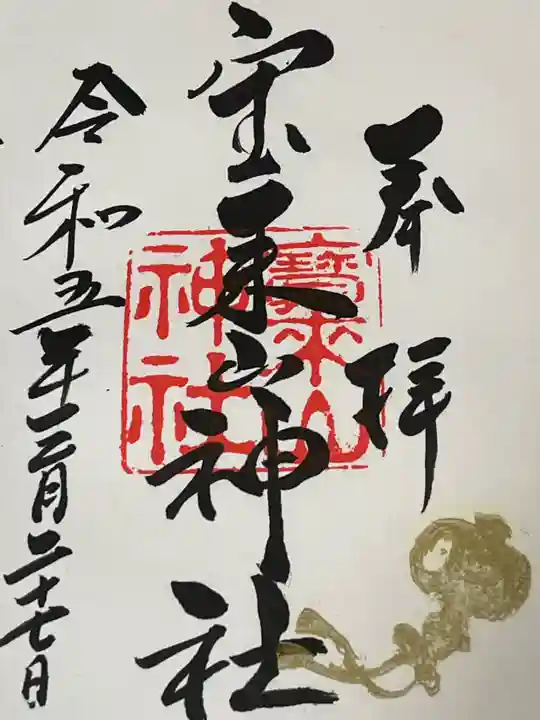 奉拝
宝来山神社
寳来山
神社
令和五年十二月二十七日